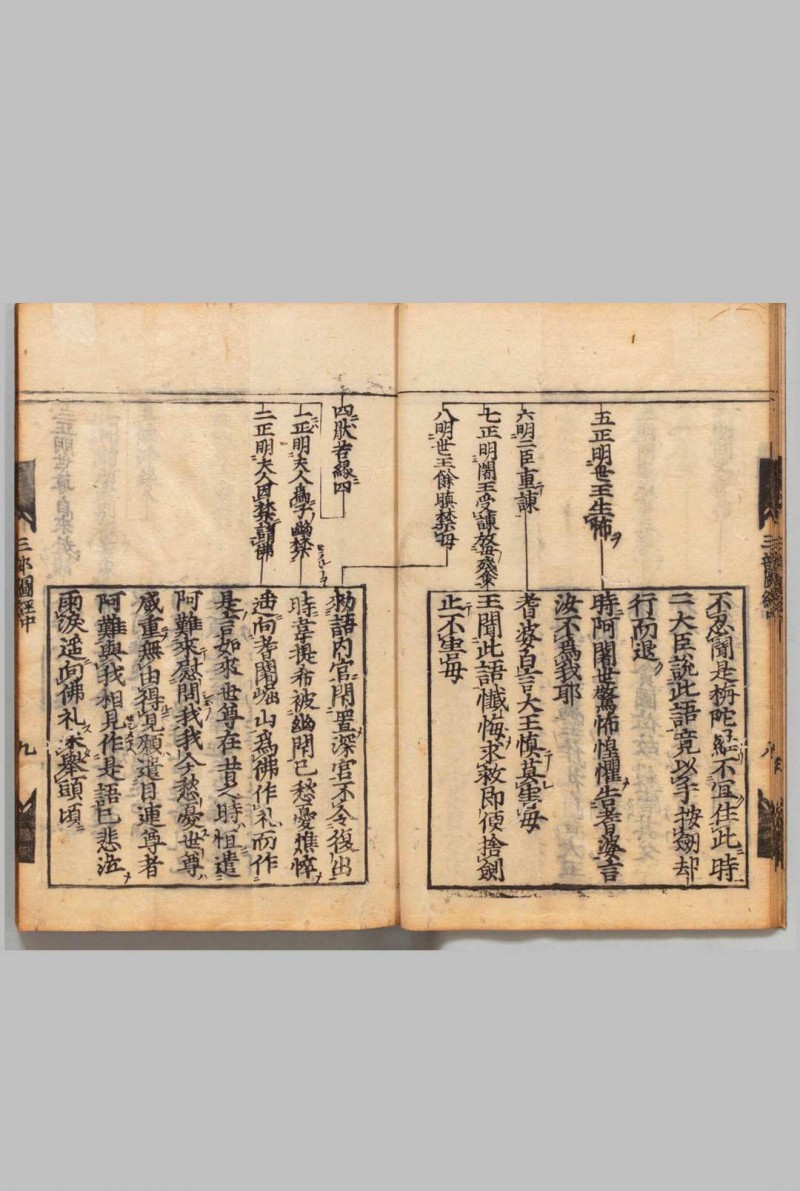 五正明世王生怖ヲ
六明二臣重諫
七正明闍王受諫放捨殘棄
八明世王餘瞋禁母
不忍聞是栴陀羅不宜住此時
二大臣說此語竟以手按劔却
行而退
時阿闍世驚怖惶懼告耆婆言
汝不爲我耶
耆婆白言大王慎莫害母
王聞此語懺悔求救即便捨劔
止不害母
十四猒苦緣四
一正明夫人爲子幽禁
二正明夫人因禁請佛
勑語内官閇置深宮不令復出
時韋提希被幽閇已愁憂憔悴
遥向耆闍崛山爲佛作礼而作
是言如來世尊在昔之時恒遣
阿難來慰問我我今愁憂世尊
威重無由得見願遣目連尊者
阿難與我相見作是語已悲泣
雨淚遥向佛礼未舉頭頃
三部圖經中
九